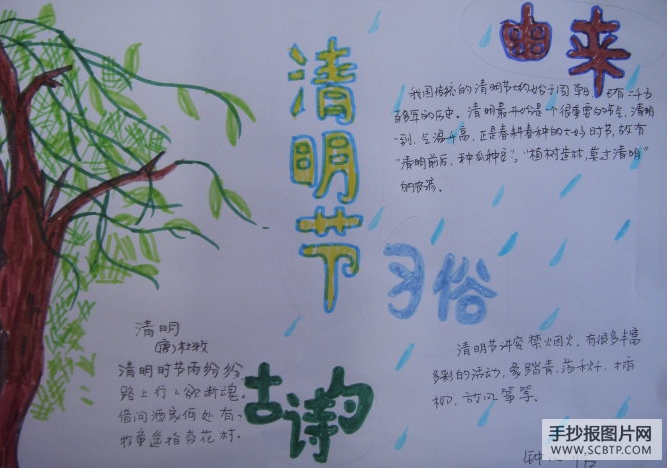 清明节
由来
我国传统的清明节大约始于周朝,已有二千五
百多年的历史。清明最开始是一个很重要的节气,清明
一到,气温升高,正是春耕春种的大好时节,故有
“清明前后,种瓜种豆”。“植树造林,莫过清明”
的农谚。
习俗
清明节讲究禁烟火、有很多丰富
多彩的活动,象踏青,荡秋千、插
柳、放风筝等。
古诗
清明
(唐)杜牧
清明时节雨纷纷
路上行人欲断魂。
借问酒家何处有,
牧童遥指杏花村。
手抄报图片网
WWW.SCBTP.COM